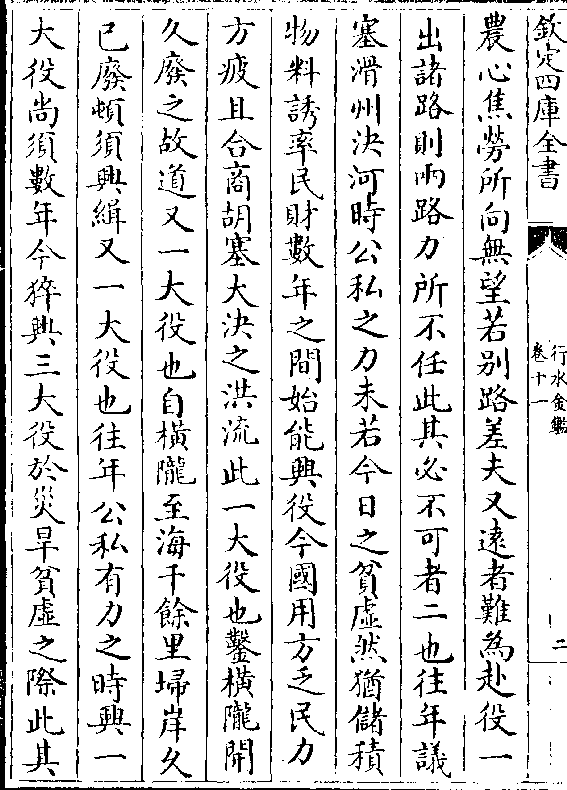 欽定四庫全書
行水金鑑
卷十一
二
農心焦勞所向無望若别路差夫又逺者難為赴役一
出諸路則兩路力所不任此其必不可者二也往年議
塞滑州決河時公私之力未若今日之貧虚然猶儲積
物料誘率民財數年之間始能興役今國用方乏民力
方疲且合商胡塞大決之洪流此一大役也鑿橫隴開
久廢之故道又一大役也自橫隴至海千餘里埽岸久
已廢頓須興緝又一大役也往年公私有力之時興一
大役尚須數年今猝興三大役於災旱貧虚之際此其